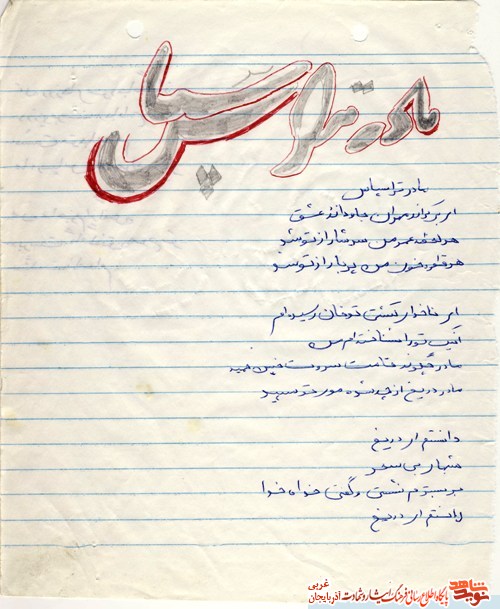 مادر ترا سپاس
مادر ترا سپاس
ای بر کرانه عمر من جاودانه عشق
هر لحظه عمر من سرشار از تو شد
هر قطره خون من پربار از تو شد
ای ناخدای کشتی توفان رسیده ام
اینک تو را شناخته ام من
مادر چگونه قامت سروت چنین خمید
مادر دریغ از چه شده موی تو سپید
دانستم ای دریغ
شبهای بی سحر
بر بسترم نشستی و گفتی خدا خدا
دانستم ای دریغ
نوید شاهد
پایگاه اطلاع رسانی فرهنگ ایثار و شهادت آذربایجان غربی